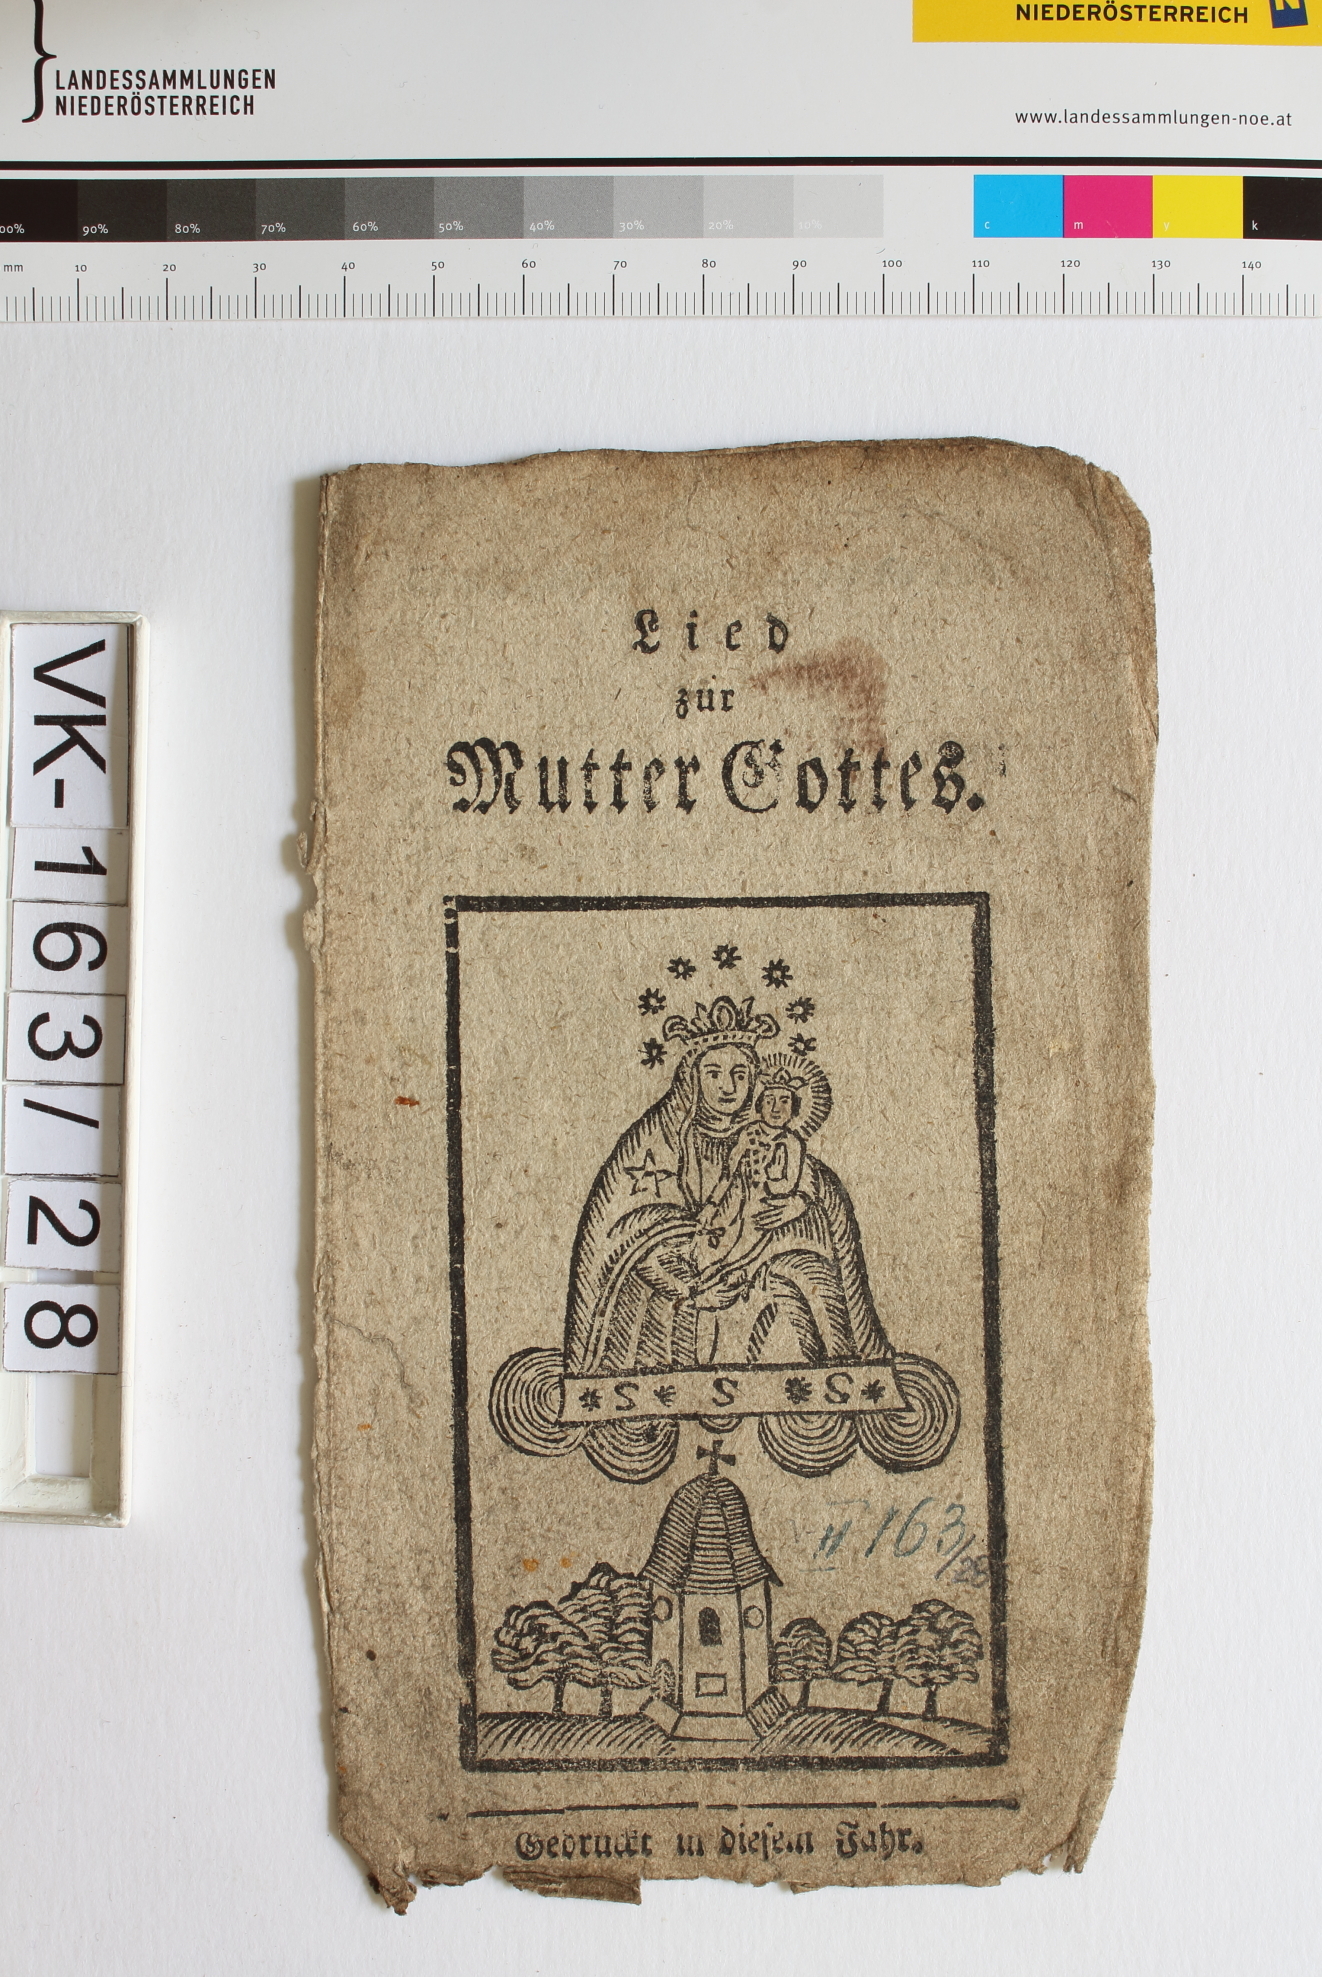 NIEDERÖSTERREICH
LANDESSAMMLUNGEN
NIEDERÖSTERREICH
www.landessammlungen-noe.at
00% 90% 80% 70% 60% 50% 40% 30% 20% 10% c m y k
mm 10 20 30 40 50 60 70 80 90 100 110 120 130 140
VK-163/28
Lied
zur
Mutter Gottes.
* S * S * S *
II 163/28
Gedruckt in diesem Jahr.